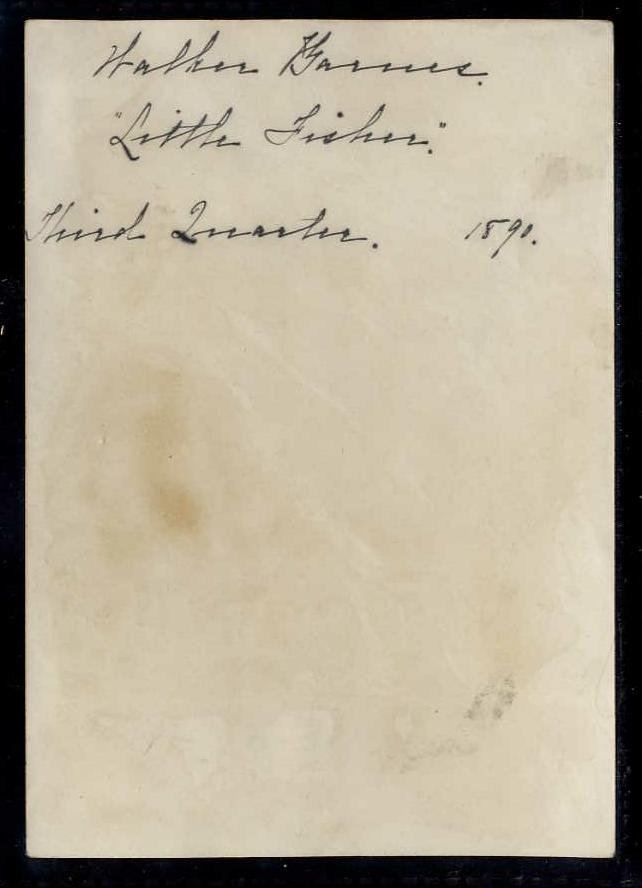 Walker Barnes.
"Little Fisher."
Third Quarter. 1890.